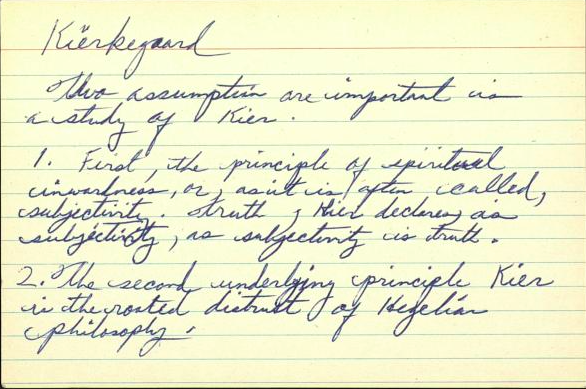 Kierkegaard
Two assumption are important in
a study of Kier.
1. First, the principle of spiritual
inwardness, or, as it is often called,
subjectivity. Truth, Kier declares, is
subjectivity, as subjectivity is truth.
2. The second underlying principle Kier
is the rooted distrust of Hegelian
philosophy.